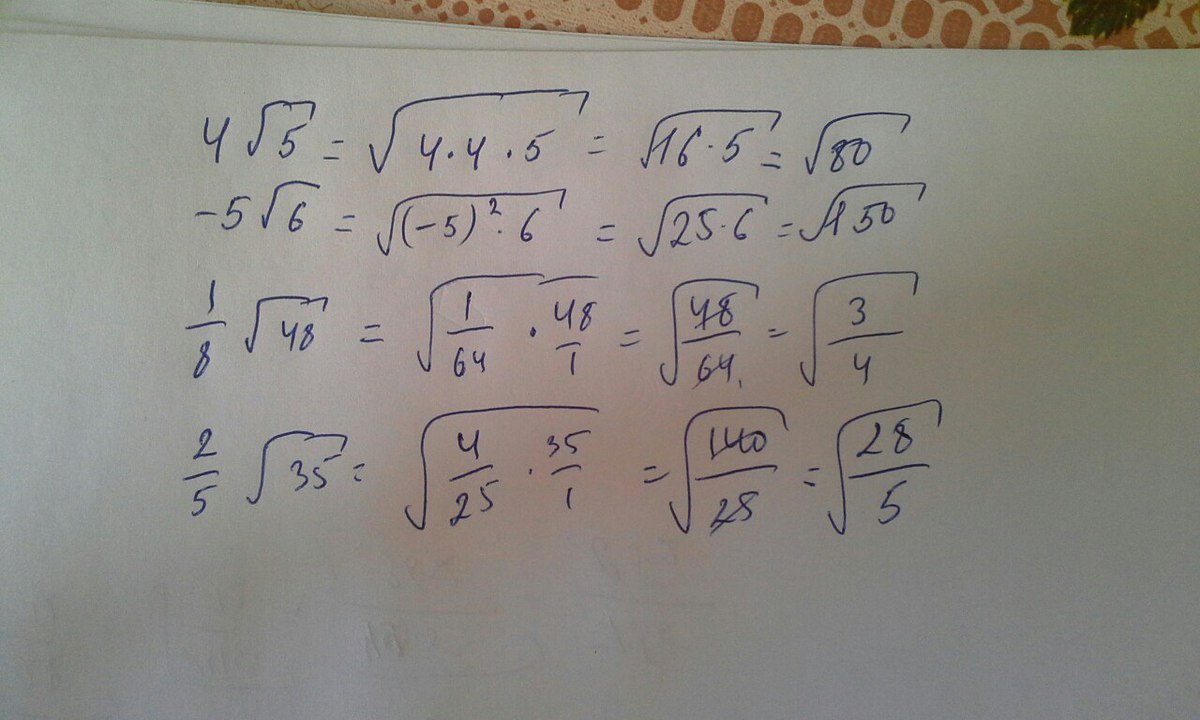 4√5 = √(4·4·5) = √(16·5) = √80
-5√6 = √((-5)²·6) = √(25·6) = √150
1/8 √48 = √(1/64 · 48/1) = √(48/64) = √(3/4)
2/5 √35 = √(4/25 · 35/1) = √(140/25) = √(28/5)